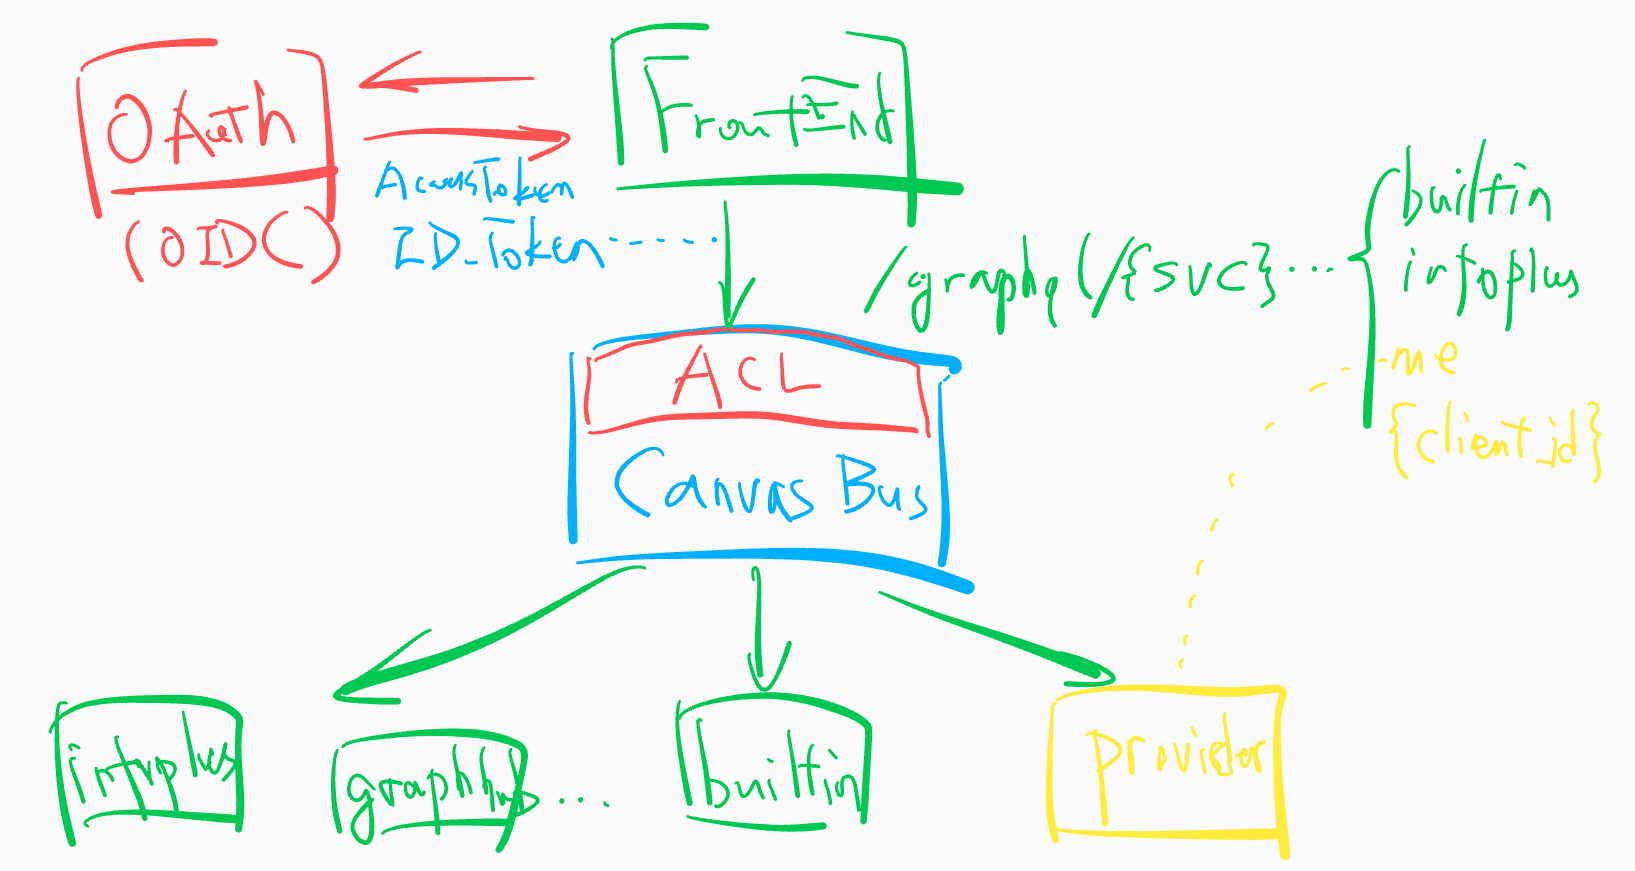 OAuth
(OIDC)
FrontEnd
AccessToken
ID_Token
/graphql/{svc}...
builtin
infoplus
me
{client_id}
ACL
Canvas Bus
infoplus
graphhub ...
builtin
provider